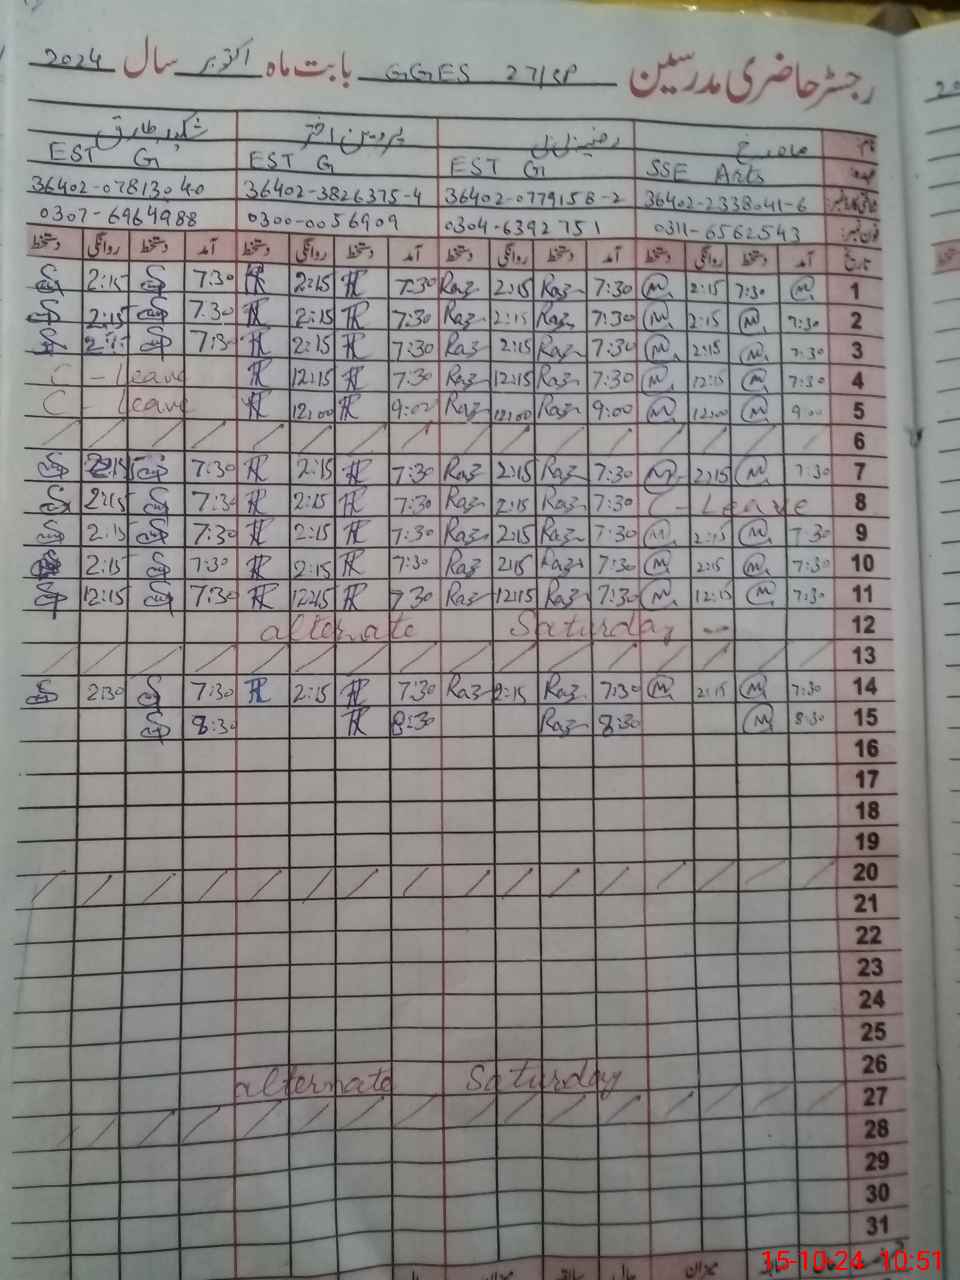 رجسٹر حاضری مدرسین GGES 27/SP بابت ماہ اکتوبر سال 2024
نام
SSE Arts EST G EST G EST G
36402-2338041-6 36402-0779158-2 36402-3826375-4
0311-6562543 0304-6392751 0300-0056909 0307-6964988
تاریخ آمد دستخط روانگی دستخط آمد دستخط روانگی دستخط آمد دستخط روانگی دستخط آمد دستخط روانگی دستخط
1 M 7:30 2:15 M 7:30 Raz 2:15 Raz 7:30 2:15 7:30 2:15
2 7:30 M 2:15 M 7:30 Raz 2:15 Raz 7:30 2:15 7:30 2:15
3 7:30 M 2:15 M 7:30 Raz 2:15 Raz 7:30 2:15
4 7:30 M 12:15 M 7:30 Raz 12:15 Raz 7:30 12:15 C - Leave
5 9:00 M 12:00 M 9:00 Raz 12:00 Raz 12:00 C - Leave
6
7 7:30 M 2:15 M 7:30 Raz 2:15 Raz 7:30 2:15 7:30
8 C - Leave 7:30 Raz 2:15 Raz 7:30 2:15 7:30 2:15
9 7:30 M 2:15 M 7:30 Raz 2:15 Raz 7:30 2:15 7:30 2:15
10 7:30 M 2:15 M 7:30 Raz 2:15 Raz 7:30 2:15 7:30 2:15
11 7:30 M 12:15 M 7:30 Raz 12:15 Raz 7:30 12:15 7:30 12:15
12 alternate Saturday
13
14 7:30 M 2:15 M 7:30 Raz 2:15 Raz 7:30 2:15 7:30 2:30
15 8:30 M 8:30 Raz 8:30 8:30
16
17
18
19
20
21
22
23
24
25
26 alternate Saturday
27
28
29
30
31
میزان
15-10-24 10:51